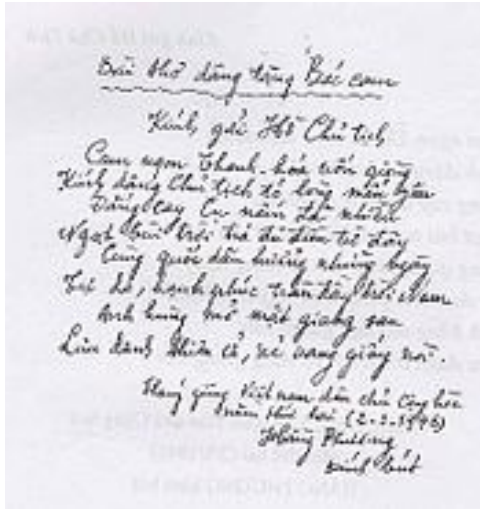 Bài thơ dâng tặng Bác cam
Kính gửi Hồ Chủ tịch
Cam ngon Thanh-hóa vốn giòng
Kính dâng Chủ tịch tỏ lòng mến yêu
Đắng cay Cụ nếm đã nhiều
Ngọt bùi trời trả đủ điều từ đây
Cùng quốc dân hưởng những ngày
Tự do, hạnh phúc tràn đầy trời Nam
Anh hùng mở mặt giang san
Lưu danh thiên cổ, vẻ vang giống nòi.
Tháng giêng Việt nam dân chủ Cộng hòa
năm thứ hai (2-1-1946)
Hằng Phương
kính bút